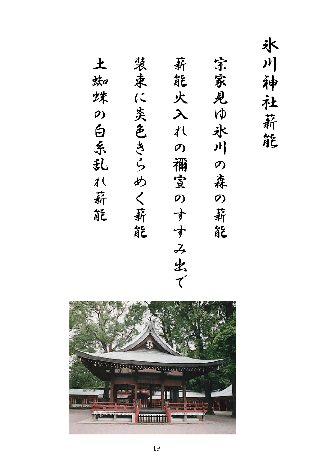 氷川神社薪能
宗家見ゆ氷川の森の薪能
薪能火入れの禰宜のすすみ出で
装束に炎色きらめく薪能
土蜘蛛の白糸乱れ薪能